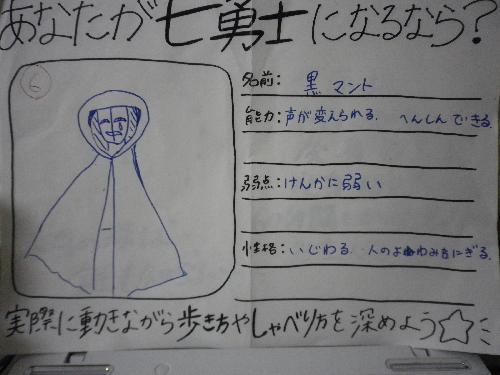 あなたが七勇士になるなら?
6
名前: 黒マント
能力: 声が変えられる. へんしんできる.
弱点: けんかに弱い
性格: いじわる. 人のよわみをにぎる.
実際に動きながら歩き方やしゃべり方を深めよう☆